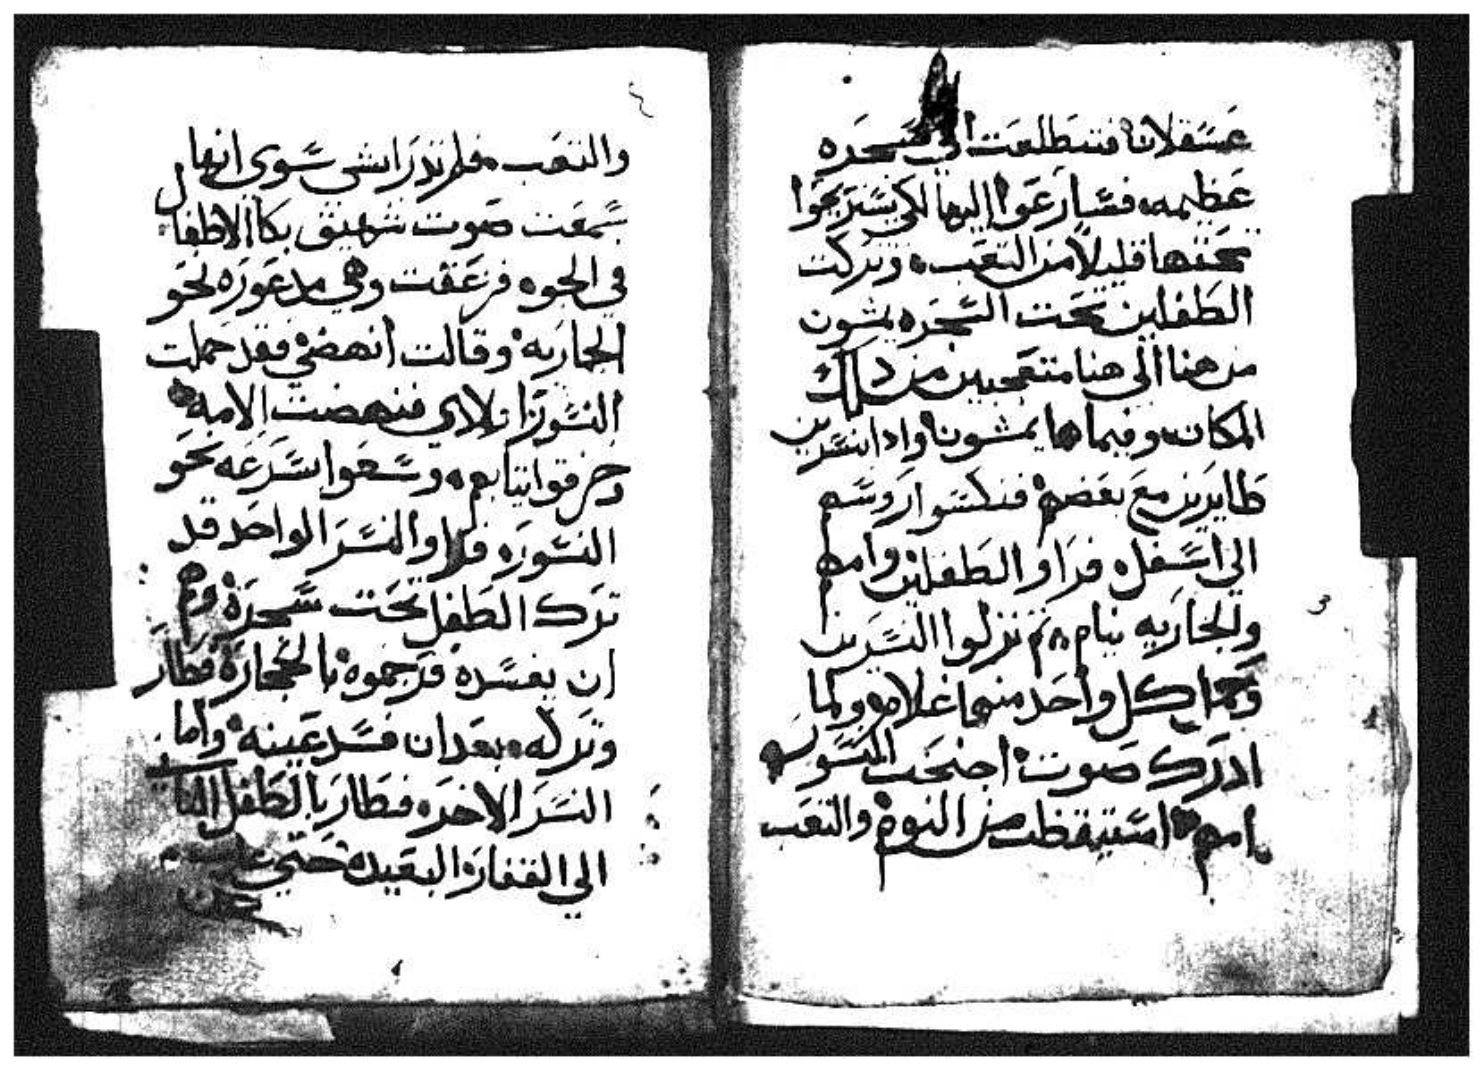 عسقلان فتطلعت الي شجره
عظيمه فسارعوا اليها لكي يستريحوا
تحتها قليلا من التعب وتركت
الطفلين تحت الشجره يمشون
من هنا الي هنا متعجبين من ذلك
المكان وفيما هما يمشون وادا نسرين
طايرين مع بعضهم فنكسوا روسهم
الي اسفل فراوا الطفلين وامهم
والجاريه نيام ثم نزلوا النسرين
كل واحد منهما غلام ولما
ادرك صوت اجنحت النسوره
امهم استيقظت من النوم والتعب
3
4
والتعب فلم تدرا بشي سوي انها
سمعت صوت شهيق بكا الاطفال
في الجوه فزعقت وهي مدعوره نحو
الجاريه وقالت انهضي فقد حملت
النسور اولادي فنهضت الامه
وخرقوا تيابهم وسعوا بسرعه نحو
النسوره فراوا النسر الواحد قد
ترك الطفل تحت شجرة وهم
ان يفسده فرجموه بالحجارة فطار
وتركه بعد ان فسد عينه واما
النسر الاخر فطار بالطفل الثاني
الي القفارة البعيده حتي
عن